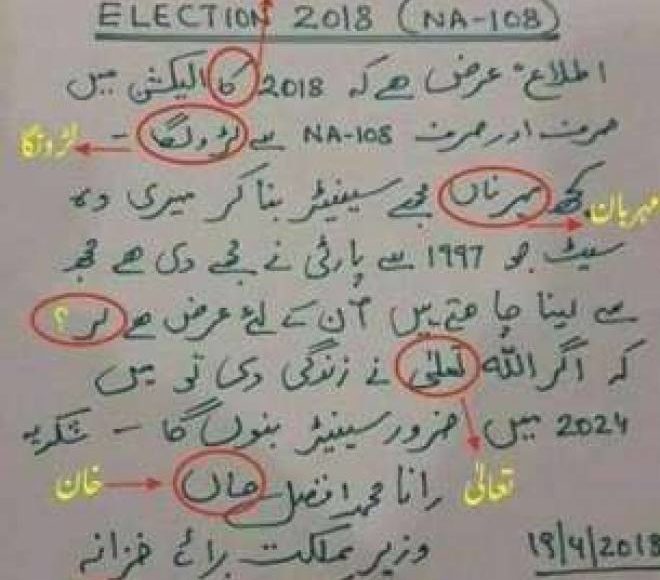 ELECTION 2018 (NA-108)
اطلاع عرض ھے کہ 2018 کا الیکشن میں
صرف اور صرف NA-108 سے لڑولگا -
لڑونگا
کچھ مہرناں مجھے سینیٹر بنا کر میری وہ
مہربان
سیٹ جو 1997 سے پارٹی نے مجھے دی ھے مجھ
سے لینا چاھتے ہیں اُن کے لئے عرض ھے لر ؟
کہ اگر اللہ تعلٰی نے زندگی دی تو میں
2024 میں ضرور سینیٹر بنوں گا - شکریہ
تعالٰی
رانا محمد افضل ھاں
خان
وزیر مملکت برائے خزانہ
19/4/2018